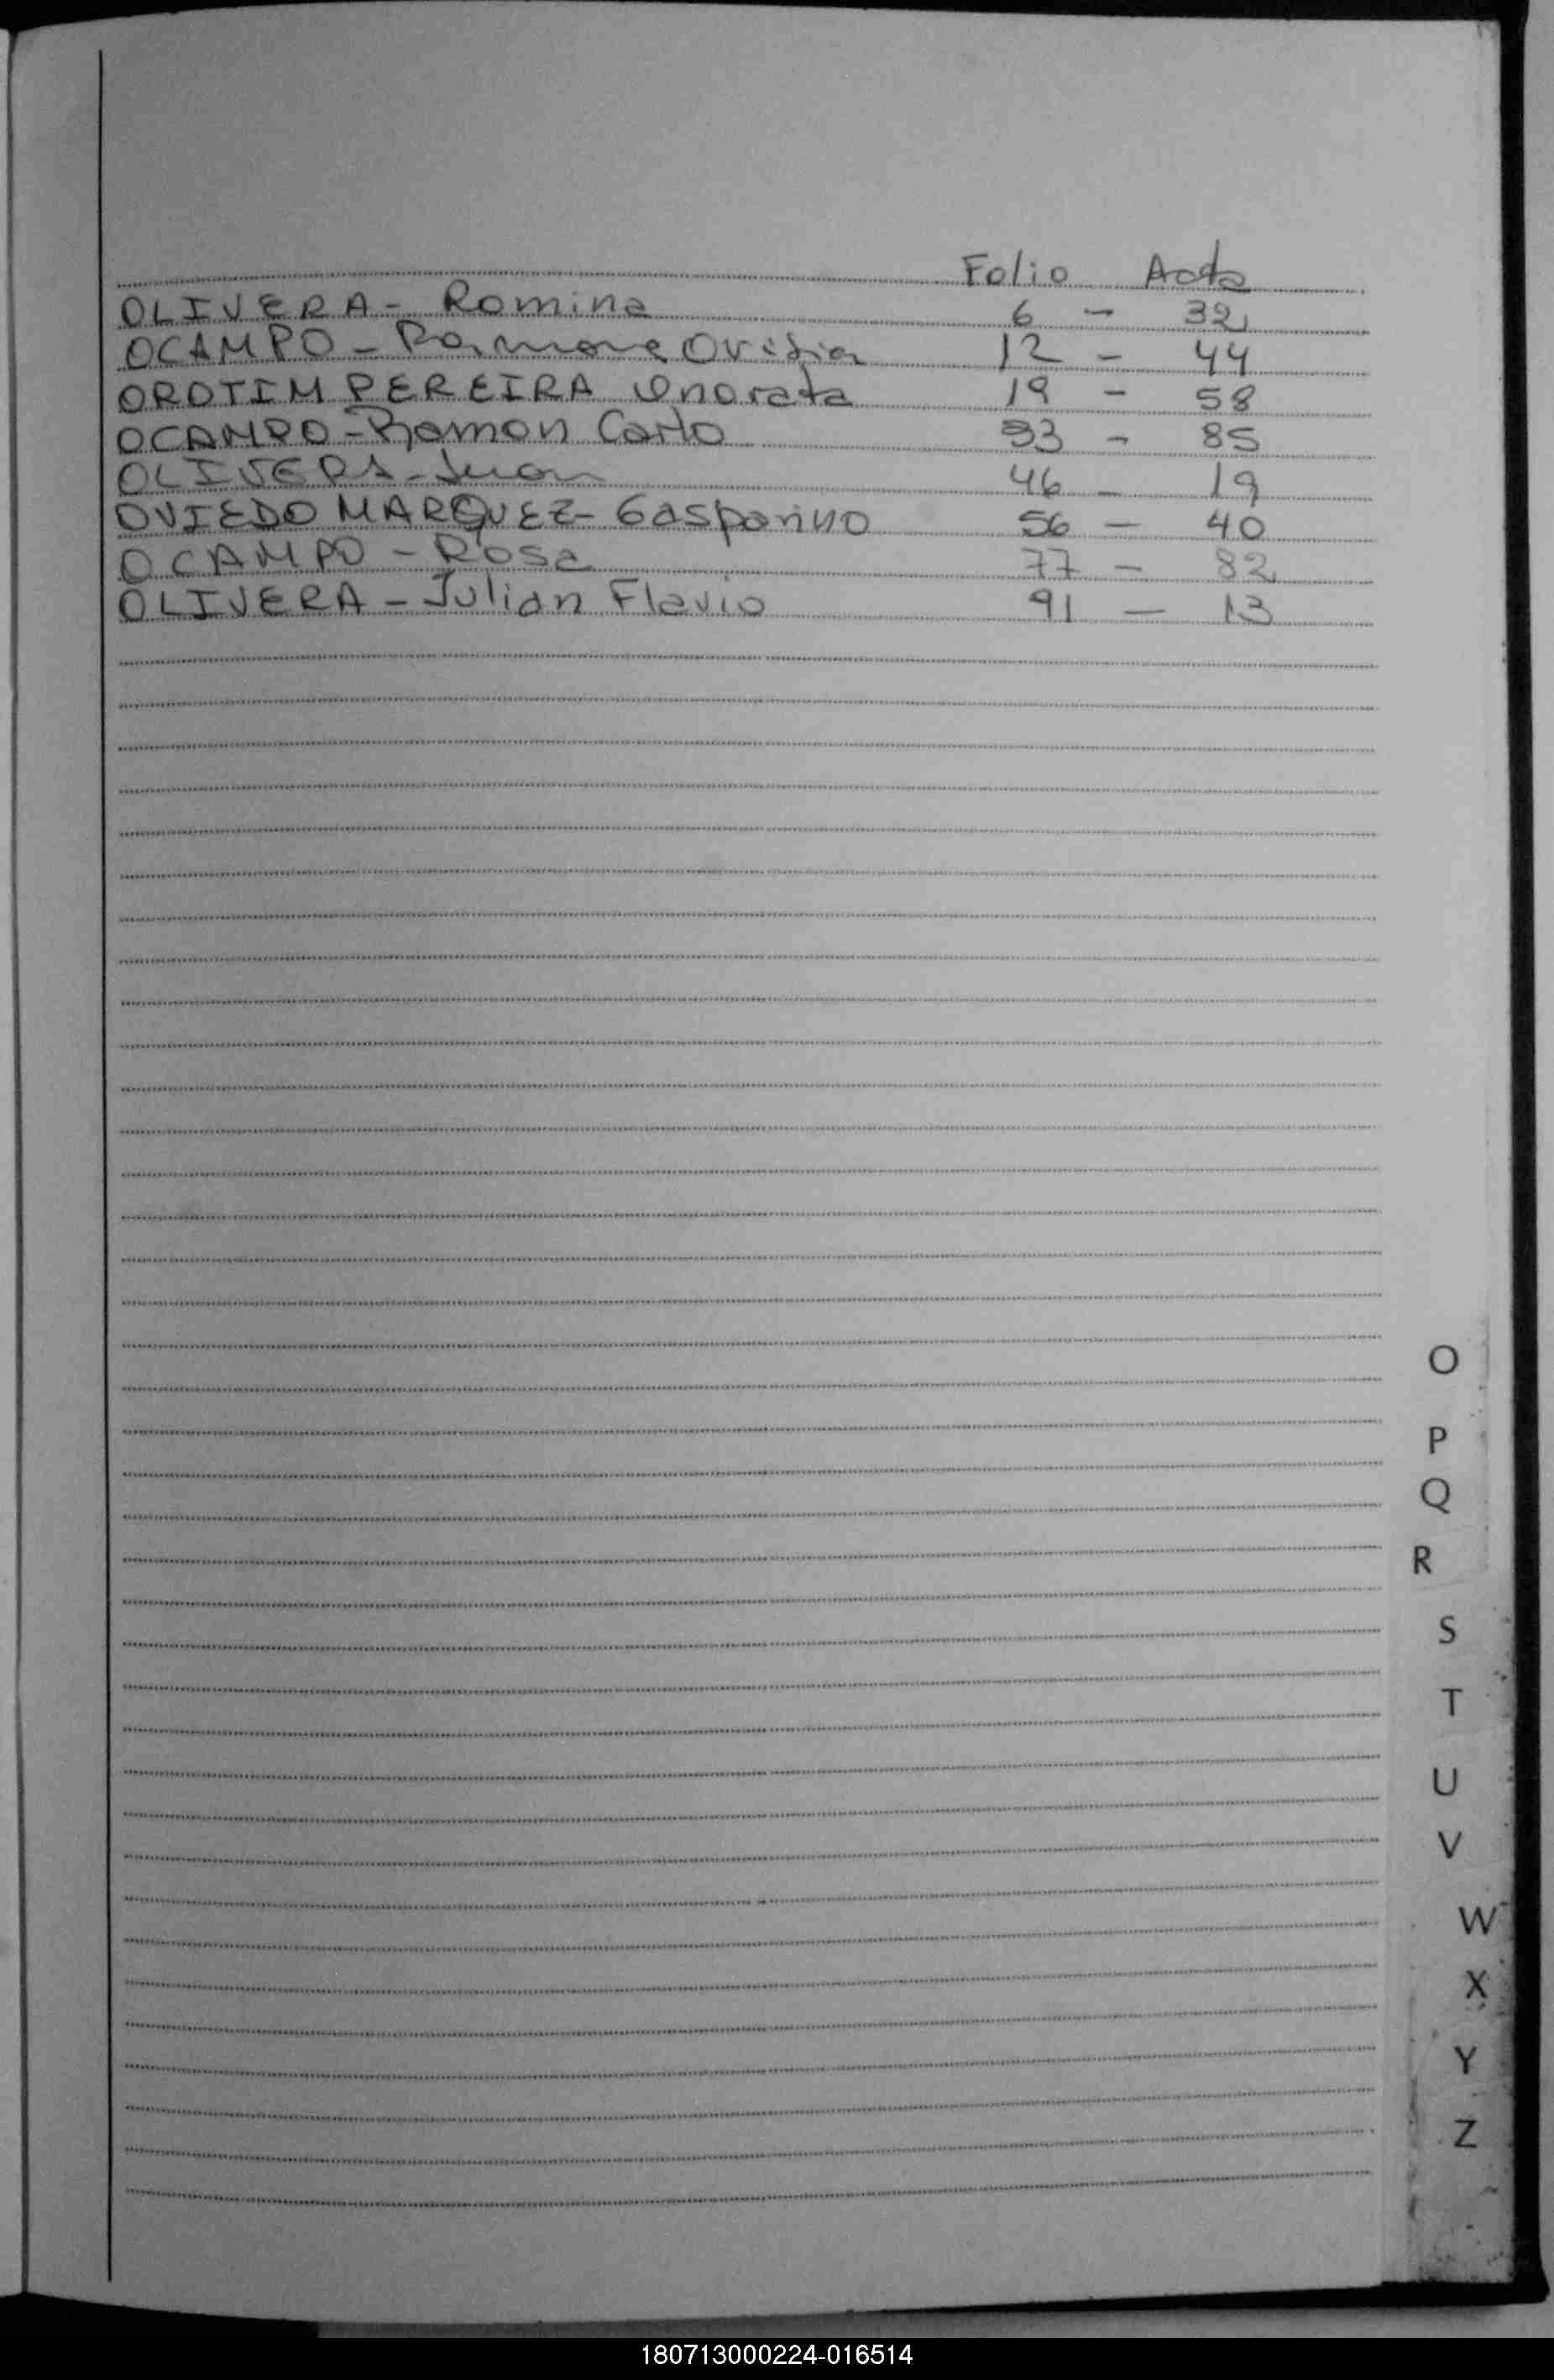 Folio Acta
OLIVERA - Romina 6 - 32
OCAMPO - Ramona Ovidia 12 - 44
OROTIM PEREIRA Onorata 19 - 58
OCAMPO - Ramon Carlo 33 - 85
OLIVERA - Juan 46 - 19
OVIEDO MARQUEZ - Gasparino 56 - 40
OCAMPO - Rosa 77 - 82
OLIVERA - Julian Flavio 91 - 13
O
P
Q
R
S
T
U
V
W
X
Y
Z
180713000224-016514